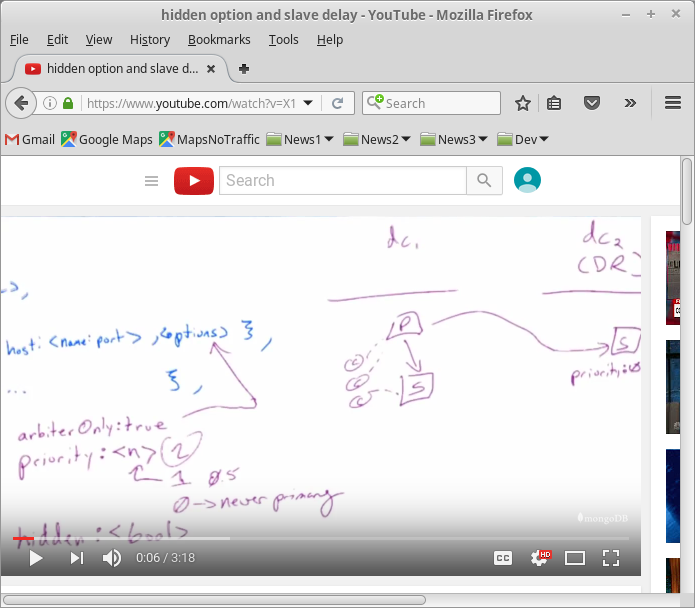 hidden option and slave delay - YouTube - Mozilla Firefox
File Edit View History Bookmarks Tools Help
hidden option and slave d...
https://www.youtube.com/watch?v=X1
Search
Gmail Google Maps MapsNoTraffic News1 News2 News3 Dev
Search
dc1
dc2
(DR)
host: <name:port>, <options> },
P
S
c
c
c
S
priority:0
...
},
arbiterOnly:true
priority:<n> 2
1 0.5
0 -> never primary
mongoDB
hidden:<bool>
0:06 / 3:18
CC
HD